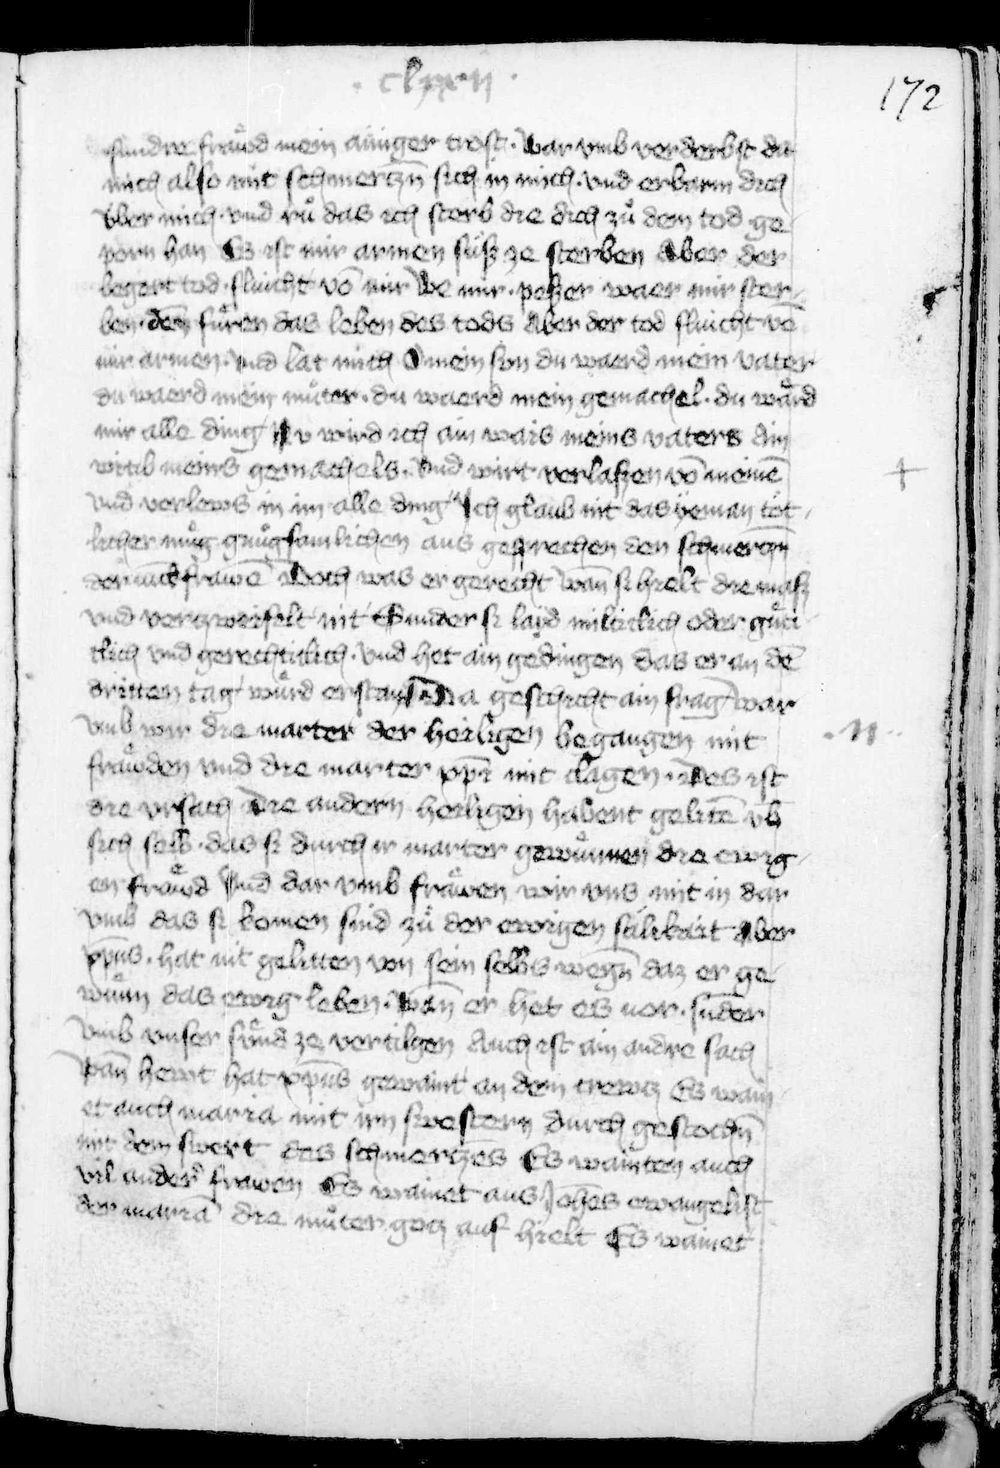 · clxxii ·
172
sundre fraͤwd mein ainiger trost · War vmb verderbst du
mich also mit schmertzn̄ sich in mich · vnd erbarm dich
vͤber mich · vnd tuͦ das ich sterb die dich zuͦ dem tod ge
porn han Es ist mir armen suͤsz ze sterben Aber der
begert tod · fluicht vō mir We mir · peszer waer mir ster
ben · den̄ fuͤren das leben des tods Aber der tod fluicht vō
mir armen · vnd lat mich O mein sun du waerd mein vater
du waerd mein muͦter · du waerd mein gemachel · du waͤrd
mir alle ding Nv wird ich ain wais meins vaters Ain
witib meins gemachels · Vnd wirt verlaszen vō meinē
vnd verlews in im alle ding Ich glaub nit das yeman toͤt
licher muͤg gnuͦgsamlichen aus gesprechen den schmertzn̄
der iunckfrawē Doch was er gerecht wan̄ si hielt die masz
vnd verzweifelt nit Sunder si layd miltiklich oder guͤti
klich vnd gerechtiklich · vnd het ain gedingen das er an dē
dritten tag wuͤrd erstan Da geschicht ain frag war
vmb wir die marter der heiligen begangen mit
fraͤwden vnd die marter xp̄i mit klagen · Des ist
die vrsach Die andern heiligen habent gelitē vb̄
sich selb · das si durch ir marter gewuͤnnen die ewig
en fraͤwd Vnd dar vmb fraͤwen wir vns mit in dar
vmb das si komen sind zuͦ der ewigen saͤlikait Aber
xp̄us · hat nit gelitten von sein selbs wegn̄ daz er ge
wuͤnn das ewig leben · Wan̄ er het es vor · sunder
vmb vnser suͤnd ze vertilgen Auch ist ain andre sach
Wan̄ hewt hat xp̄us gewaint an dem crewtz Es wain
et auch maria mit irn swestern durch gestochn̄
mit dem swert des schmertzēs Es wainten auch
vil ander frawen Es wainet aus Joh̄es ewangelist
der maria die muͦter gotz auf hielt Es wainet
+
· n ·